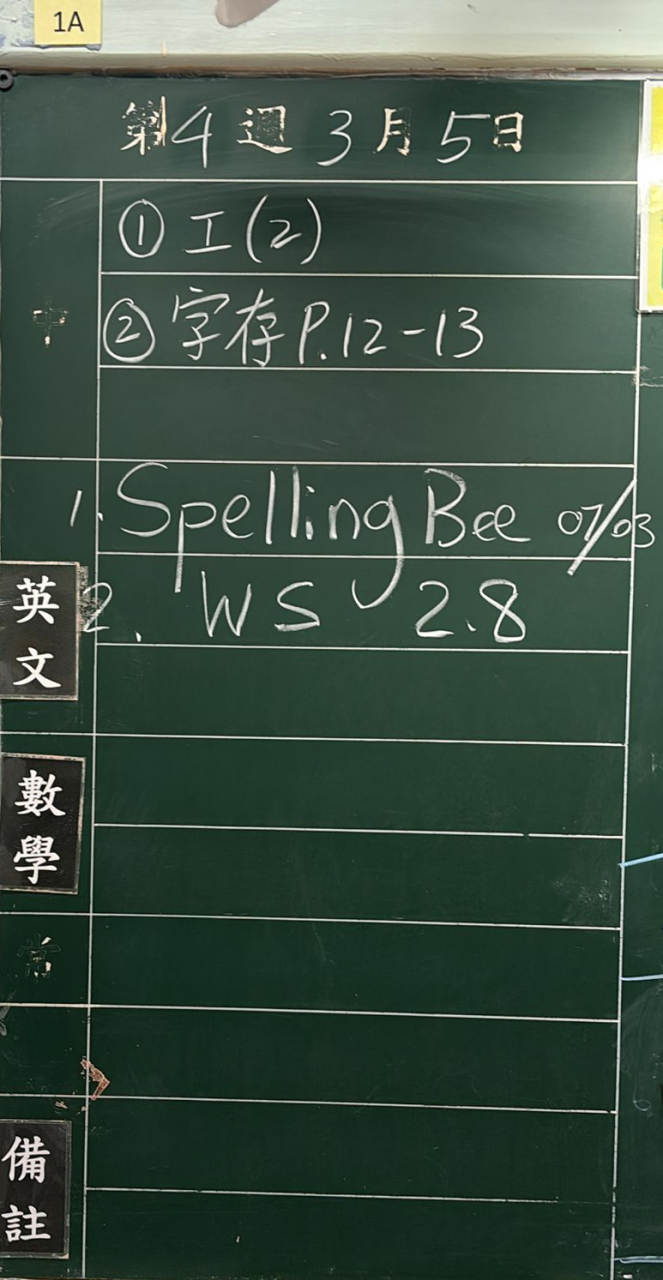 1A
第4週3月5日
中
①工(2)
②字存P.12-13
1. Spelling Bee 07/03
英文
2. WS 2.8
數學
常
備註